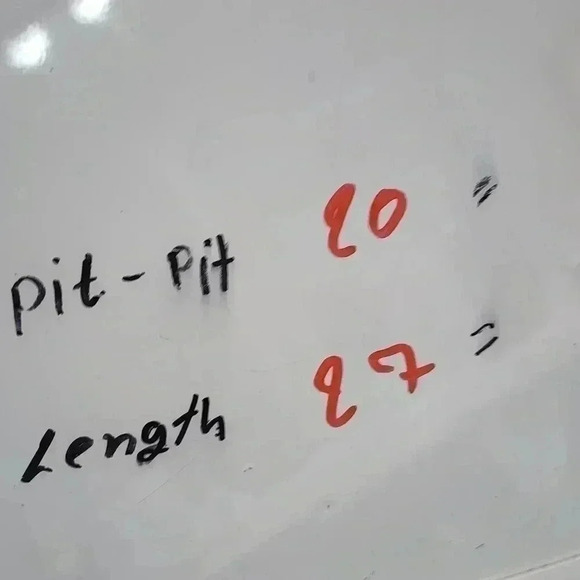 pit - Pit 20 "
Length 27 "